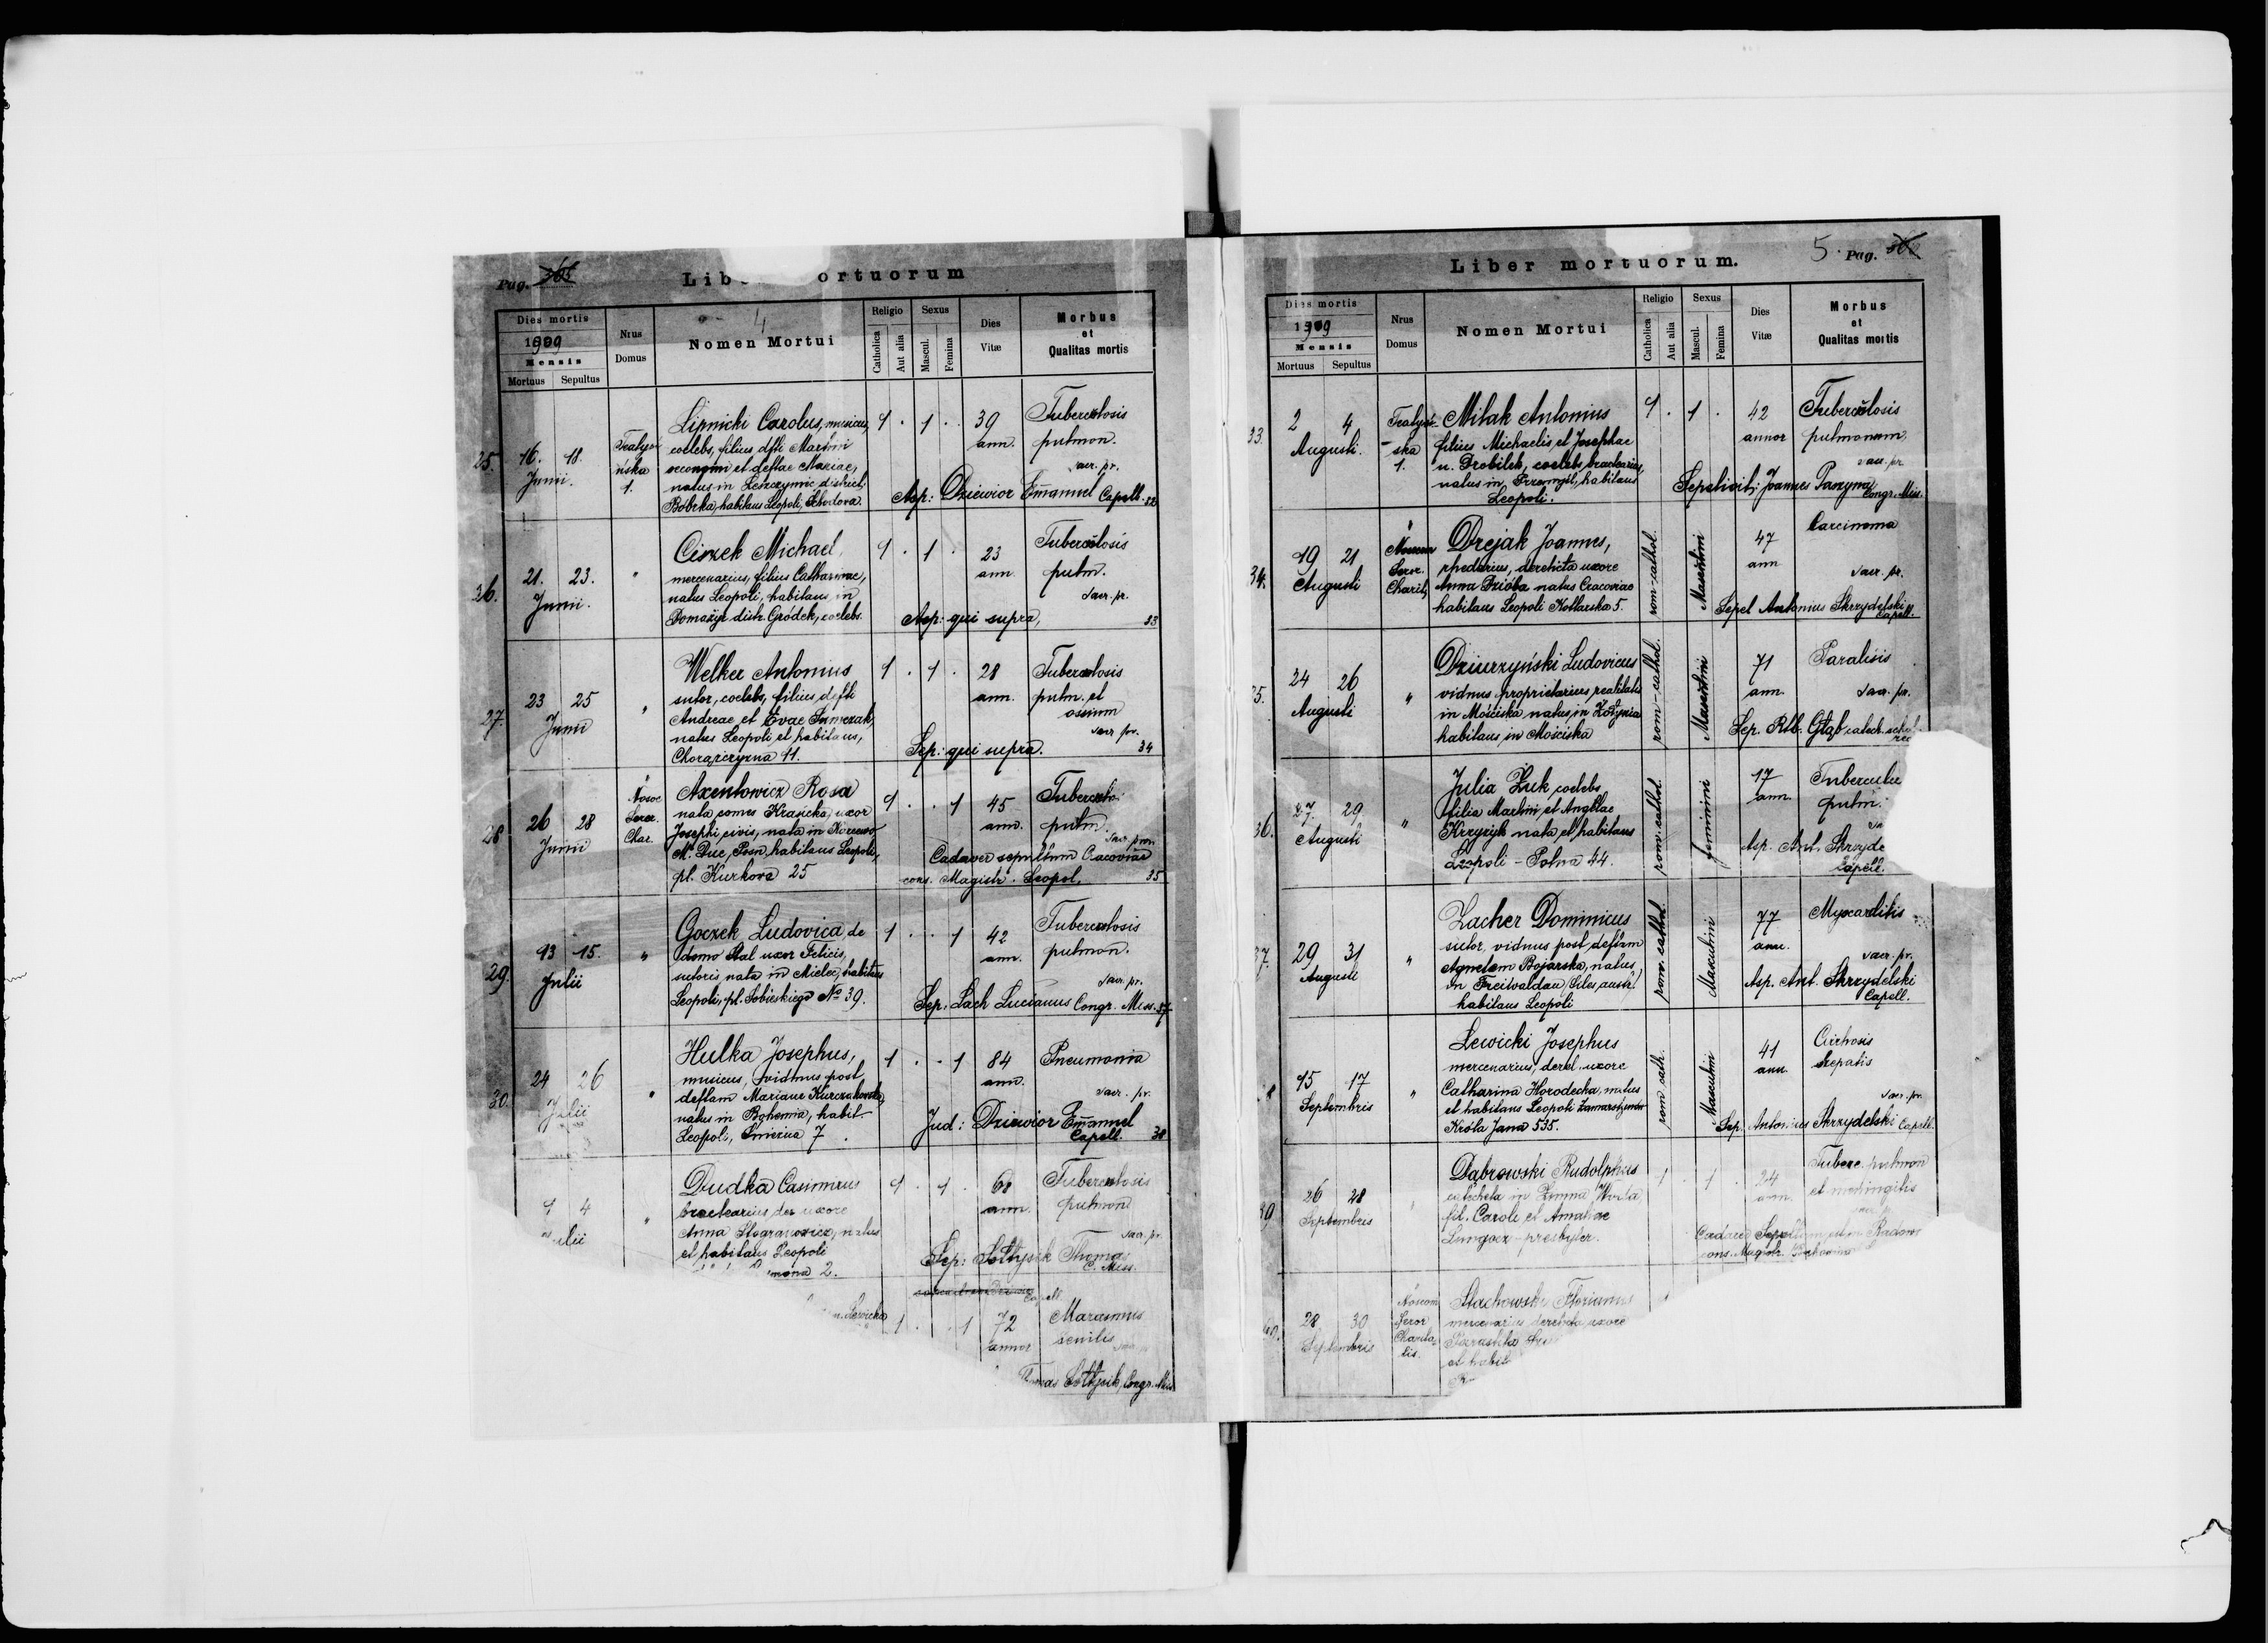 Pag. 365
Lib ortuorum
4
Dies mortis
1909
Mensis
Mortuus Sepultus
Nrus
Domus
Nomen Mortui
Religio
Catholica
Aut alia
Sexus
Mascul.
Femina
Dies
Vitæ
Morbus
et
Qualitas mortis
25.
16. 18.
Junii.
1.
Lipnicki Carolus, musicus,
coelebs, filius dfti Martini
oeconomi et deftae Mariae,
natus in district.
Bóbrka, habitans Leopoli,
1 . 1 . .
39
ann.
Tuberculosis
pulmon.
sacr. pr.
Asp: Dziewior Emanuel Capell. 32
26.
21. 23.
Junii.
"
Ciszek Michael,
mercenarius, filius Catharinae,
natus Leopoli, habitans in
Domażyr distr. Gródek, coelebs.
1 . 1 .
23
ann.
Tuberculosis
pulm.
sacr. pr.
Asp: qui supra, 33
27.
23 25
Junii
"
Welker Antonius
sutor, coelebs, filius defti
Andreae et Evae
natus Leopoli et habitans,
Chorążczyzna 11.
1 . 1 .
28
ann.
Tuberculosis
pulm. et
ossium
sacr. pr.
Sep: qui supra. 34
28
26 28
Junii
Nosoc
Soror.
Char.
Axentowicz Rosa
nata comes Krasicka, uxor
Josephi civis, nata in
M. Duc. Posn, habitans Leopoli,
pl. Kurkowa 25
1 . . 1
45
ann.
pulm.
Cadaver sepultum Cracoviae
cons. Magistr. Leopol. 35
29.
13 15.
Julii
"
Goczek Ludovica, de
domo Stal uxor Felicis,
sutoris nata in Mielec, habitans
Leopoli, pl. Sobieskiego No 39.
1 . . 1
42
ann.
Tuberculosis
pulmon.
sacr. pr.
Sep: Lach Lucianus Congr. Miss. 37
30.
24 26
Julii
"
Hulka Josephus,
musicus, viduus post
deftam Mariane
natus in Bohemia, habit
Leopoli, Śnieżna 7.
1 . . 1
84
ann.
Pneumonia
sacr. pr.
Jud: Dziewior Emanuel
Capell. 38
4
ulii
"
Dudka Casimirus
bractearius, der uxore
Anna natus
et habitans Leopoli
2.
1 . 1 .
68
ann.
Tuberculosis
pulmon
sacr. pr.
Sep: Sołtysik Thomas
C. Miss.
Capell.
1 . . 1
72
annor
Marasmus
senilis
Thomas Sołtysik, Congr. Miss
Liber mortuorum.
5. Pag.
Dies mortis
1909
Mensis
Mortuus Sepultus
Nrus
Domus
Nomen Mortui
Religio
Catholica
Aut alia
Sexus
Mascul.
Femina
Dies
Vitæ
Morbus
et
Qualitas mortis
33.
2 4
Augusti.
1.
Milak Antonius
filius Michaelis et Josephae
n. Drobilek, coelebs, bractearius,
natus in Przemyśl, habitans
Leopoli.
1 . 1 .
42
annor
Tuberculosis
pulmonum
sacr. pr.
Sepelivit: Joannes Paszyna
Congr. Miss.
34.
19 21
Augusti
Soror.
Charit.
Drejak Joannes,
rhedarius, derelicta uxore
Anna Dzióba natus Cracoviae
habitans Leopoli Kotlarska 5.
rom-cathol.
Masculini
47
ann
Carcinoma
sacr. pr.
Sepel Antonius Skrzydelski
Capell.
35.
24 26
Augusti
"
Dziurzyński Ludovicus
viduus proprietarius realitatis
in Mościska natus in
habitans in Mościska
rom-cathol.
Masculini
71
ann.
Paralisis
sacr. pr.
Sep. Rtb. Głąb catech.
36.
27. 29.
Augusti
"
Julia Żuk coelebs
filia Martini et
Krzyżyk nata et habitans
Leopoli - Polna 44.
rom. cathol.
feminini
17
ann.
pulm.
Asp. Ant. Skrzyde
Capell.
37.
29 31
Augusti
"
Zacher Dominicus
sutor, viduus post deftam
Agnetem Bojarska, natus
in Freiwaldau (Siles. austr.)
habitans Leopoli
rom. cathol.
Masculini
77
ann.
Myocarditis
sacr. pr.
Asp. Ant. Skrzydelski
Capell.
15 17
Septembris
"
Lewicki Josephus
mercenarius, derel. uxore
Catharina Horodecka, natus
et habitans Leopoli
Króla Jana 535.
rom cath.
Masculin
41
ann.
Cirrhosis
hepatis
sacr. pr.
Sep. Antonius Skrzydelski Capell.
39
26 28
Septembris
Dąbrowski Rudolphus
catecheta in
fil. Caroli et Amaliae
presbyter.
1 . 1 .
24
ann.
Tuberc. pulmon
et meningitis
40.
28 30
Septembris
Nosocom
Soror
Charita-
tis.
Stachowski Florianus
mercenarius, derelicta uxore
et habit